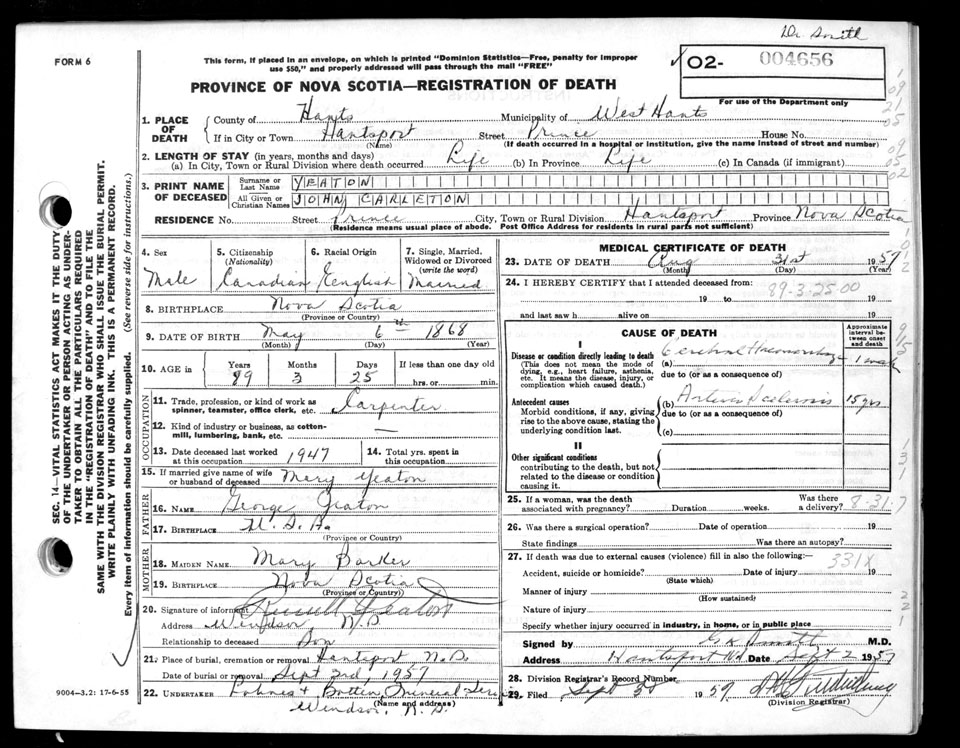 Dr Smith
FORM 6
This form, if placed in an envelope, on which is printed "Dominion Statistics—Free, penalty for improper
use $50," and properly addressed will pass through the mail "FREE"
02- 004656
For use of the Department only
PROVINCE OF NOVA SCOTIA—REGISTRATION OF DEATH
1. PLACE OF DEATH
County of Hants Municipality of West Hants
If in City or Town Hantsport Street Prince House No.
(Name) (If death occurred in a hospital or institution, give the name instead of street and number)
2. LENGTH OF STAY (in years, months and days)
(a) In City, Town or Rural Division where death occurred Life (b) In Province Life (c) In Canada (if immigrant)
3. PRINT NAME OF DECEASED
Surname or Last Name YEATON
All Given or Christian Names JOHN CARLETON
RESIDENCE No. Street Prince City, Town or Rural Division Hantsport Province Nova Scotia
(Residence means usual place of abode. Post Office Address for residents in rural parts not sufficient)
4. Sex Male
5. Citizenship (Nationality) Canadian
6. Racial Origin English
7. Single, Married, Widowed or Divorced (write the word) Married
8. BIRTHPLACE Nova Scotia
(Province or Country)
9. DATE OF BIRTH May 6th 1868
(Month) (Day) (Year)
10. AGE in Years 89 Months 3 Days 25 If less than one day old hrs. or min.
OCCUPATION
11. Trade, profession, or kind of work as spinner, teamster, office clerk, etc. Carpenter
12. Kind of industry or business, as cotton-mill, lumbering, bank, etc. —
13. Date deceased last worked at this occupation 1947
14. Total yrs. spent in this occupation
15. If married give name of wife or husband of deceased Mary Yeaton
FATHER
16. NAME George Yeaton
17. BIRTHPLACE U.S.A.
(Province or Country)
MOTHER
18. MAIDEN NAME Mary Barker
19. BIRTHPLACE Nova Scotia
(Province or Country)
20. Signature of informant Russell Yeaton
Address Windsor N.S.
Relationship to deceased Son
21. Place of burial, cremation or removal Hantsport N.S.
Date of burial or removal Sept 3rd, 1957
22. UNDERTAKER Funeral Service
(Name and address)
Windsor, N.S.
9004-3.2: 17-6-55
SEC. 14—VITAL STATISTICS ACT MAKES IT THE DUTY
OF THE UNDERTAKER OR PERSON ACTING AS UNDER-
TAKER TO OBTAIN ALL THE PARTICULARS REQUIRED
IN THE "REGISTRATION OF DEATH" AND TO FILE THE
SAME WITH THE DIVISION REGISTRAR WHO SHALL ISSUE THE BURIAL PERMIT.
WRITE PLAINLY WITH UNFADING INK. THIS IS A PERMANENT RECORD.
Every item of information should be carefully supplied. (See reverse side for instructions.)
MEDICAL CERTIFICATE OF DEATH
23. DATE OF DEATH Aug 31st 1957
(Month) (Day) (Year)
24. I HEREBY CERTIFY that I attended deceased from:
19 to 19
89-3-25 00
and last saw h alive on 19
CAUSE OF DEATH
Approximate interval between onset and death
I
Disease or condition directly leading to death
(This does not mean the mode of dying, e.g., heart failure, asthenia, etc. It means the disease, injury, or complication which caused death.)
(a) Cerebral Haemorrhage 1 week
due to (or as a consequence of)
Antecedent causes
Morbid conditions, if any, giving rise to the above cause, stating the underlying condition last.
(b) Arterio Sclerosis 15 yrs
due to (or as a consequence of)
(c)
II
Other significant conditions
contributing to the death, but not related to the disease or condition causing it.
25. If a woman, was the death associated with pregnancy? Duration weeks. Was there a delivery?
8-31-7
26. Was there a surgical operation? Date of operation 19
State findings Was there an autopsy?
27. If death was due to external causes (violence) fill in also the following:
331X
Accident, suicide or homicide? Date of injury 19
(State which)
Manner of injury
(How sustained)
Nature of injury
Specify whether injury occurred in industry, in home, or in public place
Signed by G K Smith M.D.
Address Hantsport NS Date Sept 2 1957
28. Division Registrar's Record Number
29. Filed Sept 3d 1957
(Division Registrar)